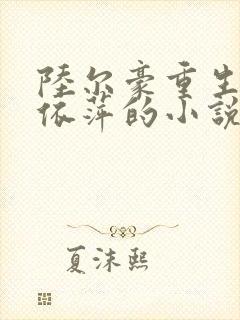 陸尔豪重生
依萍的小説
夏沫熙